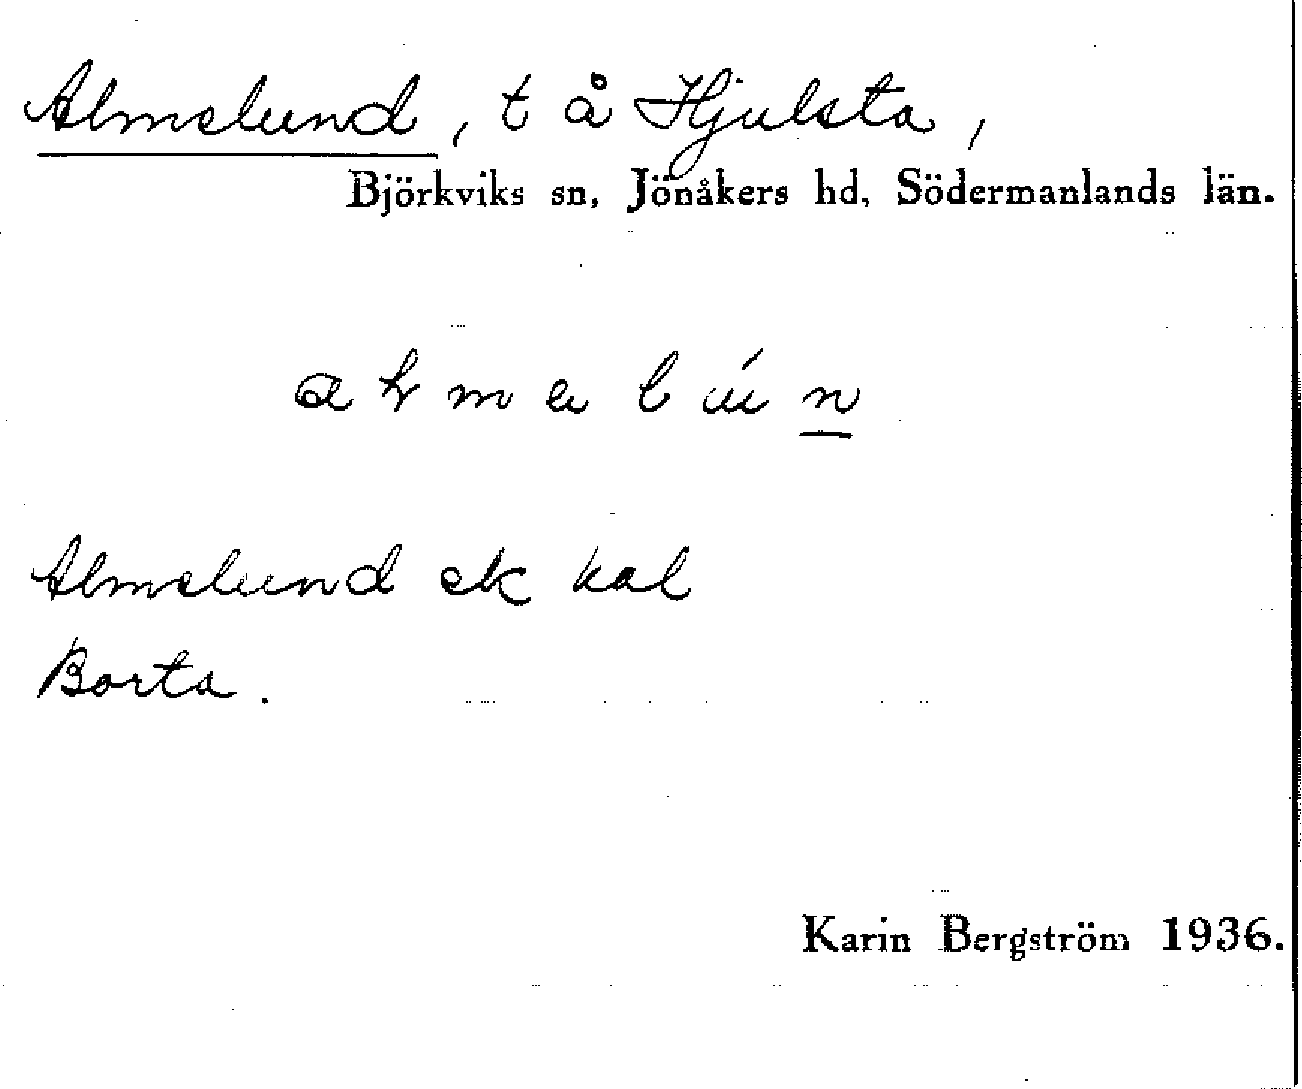 Almslund, t å Hjulsta,
Björkviks sn, Jönåkers hd, Södermanlands län.
Almslund ek kal
Borta.
Karin Bergström 1936.